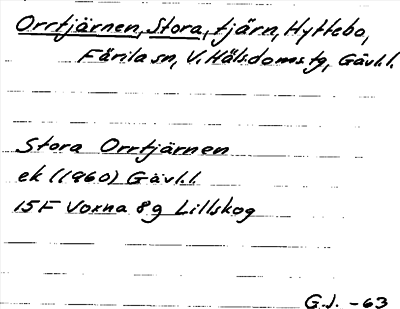 Orrtjärnen, Stora, tjärn, Hyttebo,
Färila sn, V. Hälsdoms.tg, Gävl.l.
Stora Orrtjärnen
ek (1960) Gävl.l.
15F Voxna 8g Lillskog
G.J. -63